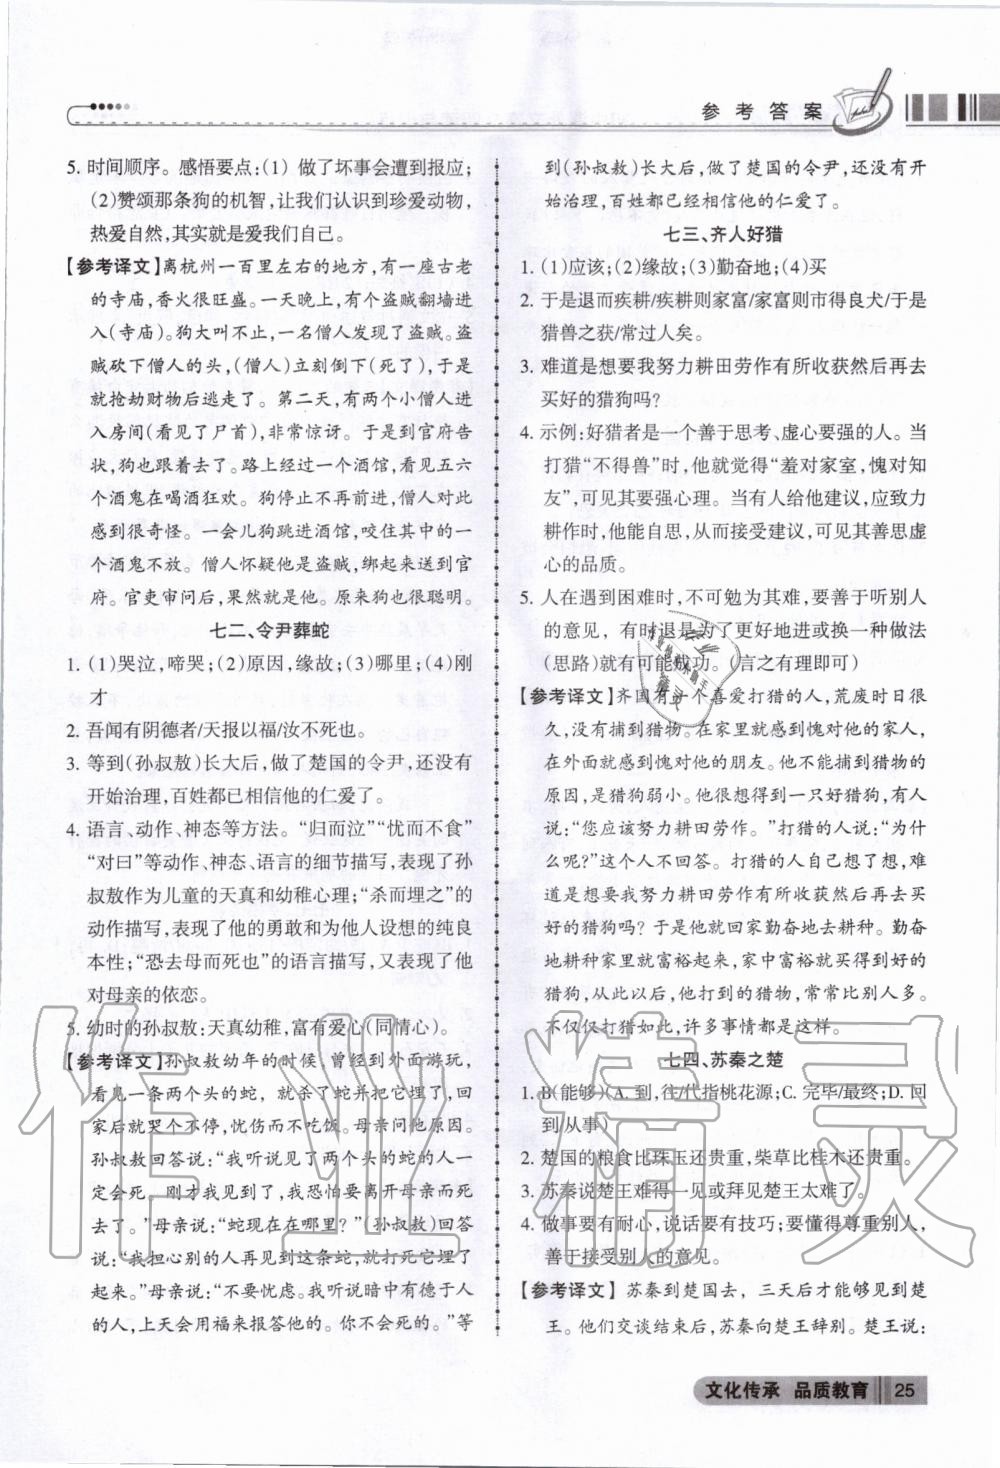 参考答案
5. 时间顺序。感悟要点:(1) 做了坏事会遭到报应;
(2)赞颂那条狗的机智,让我们认识到珍爱动物,
热爱自然,其实就是爱我们自己。
【参考译文】离杭州一百里左右的地方,有一座古老
的寺庙,香火很旺盛。一天晚上,有个盗贼翻墙进
入(寺庙)。狗大叫不止,一名僧人发现了盗贼。盗
贼砍下僧人的头,(僧人)立刻倒下(死了),于是
就抢劫财物后逃走了。第二天,有两个小僧人进
入房间(看见了尸首),非常惊讶。于是到官府告
状,狗也跟着去了。路上经过一个酒馆,看见五六
个酒鬼在喝酒狂欢。狗停止不再前进,僧人对此
感到很奇怪。一会儿狗跳进酒馆,咬住其中的一
个酒鬼不放。僧人怀疑他是盗贼,绑起来送到官
府。官吏审问后,果然就是他。原来狗也很聪明。
七二、令尹葬蛇
1. (1)哭泣,啼哭;(2)原因,缘故;(3)哪里;(4)刚
才
2. 吾闻有阴德者/天报以福/汝不死也。
3. 等到(孙叔敖)长大后,做了楚国的令尹,还没有
开始治理,百姓都已相信他的仁爱了。
4. 语言、动作、神态等方法。“归而泣”“忧而不食”
“对曰”等动作、神态、语言的细节描写,表现了孙
叔敖作为儿童的天真和幼稚心理;“杀而埋之”的
动作描写,表现了他的勇敢和为他人设想的纯良
本性;“恐去母而死也”的语言描写,表现了他
对母亲的依恋。
5. 幼时的孙叔敖:天真幼稚,富有爱心(同情心)。
【参考译文】孙叔敖幼年的时候,曾经到外面游玩,
看见一条两个头的蛇,就杀死蛇并把它埋了,回
家后就哭个不停,忧伤而不吃饭。母亲问他原因。
孙叔敖回答说:“我听说见了两个头的蛇的人一
定会死,刚才我见到了,我恐怕要离开母亲而死
去了。”母亲说:“蛇现在在哪里?”(孙叔敖)回答
说:“我担心别的人再见到这条蛇,就打死它埋了
起来。”母亲说:“不要忧虑。我听说暗中有德于人
的人,上天会用福来报答他的。你不会死的。”等
到(孙叔敖)长大后,做了楚国的令尹,还没有开
始治理,百姓都已经相信他的仁爱了。
七三、齐人好猎
1. (1)应该;(2)缘故;(3)勤奋地;(4)买
2. 于是退而疾耕/疾耕则家富/家富则市得良犬/于是
猎兽之获/常过人矣。
3. 难道是想要我努力耕田劳作有所收获然后再去
买好的猎狗吗?
4. 示例:好猎者是一个善于思考、虚心要强的人。当
打猎“不得兽”时,他就觉得“羞对家室,愧对知
友”,可见其要强心理。当有人给他建议,应致力
耕作时,他能自思,从而接受建议,可见其善思虚
心的品质。
5. 人在遇到困难时,不可勉为其难,要善于听别人
的意见,有时退是为了更好地进或换一种做法
(思路)就有可能成功。(言之有理即可)
【参考译文】齐国有一个喜爱打猎的人,荒废时日很
久,没有捕到猎物。在家里就感到愧对他的家人,
在外面就感到愧对他的朋友。他不能捕到猎物的
原因,是猎狗弱小。他想要得到一只好猎狗,有人
说:“您应该努力耕田劳作。”打猎的人说:“为什
么呢?”这个人不回答。打猎的人自己想了想,难
道是想要我努力耕田劳作有所收获然后再去买
好的猎狗吗?于是回家就勤奋地去耕种。勤奋
地耕种家里就富裕起来,家中富裕就买到了好的
猎狗,从此以后,他打到的猎物,常常比别人多。
不仅仅打猎如此,许多事情都是这样。
七四、苏秦之楚
1. B(能够)(A. 到,往/代指桃花源;C. 完毕/最终;D. 回
到/从事)
2. 楚国的粮食比珠玉还贵重,柴草比桂木还贵重。
3. 苏秦说楚王难得一见或拜见楚王太难了。
4. 做事要有耐心,说话要有技巧;要懂得尊重别人,
善于接受别人的意见。
【参考译文】 苏秦到楚国去,三天后才能够见到楚
王。他们交谈结束后,苏秦向楚王辞别。楚王说:
文化传承 品质教育 25
作业精灵